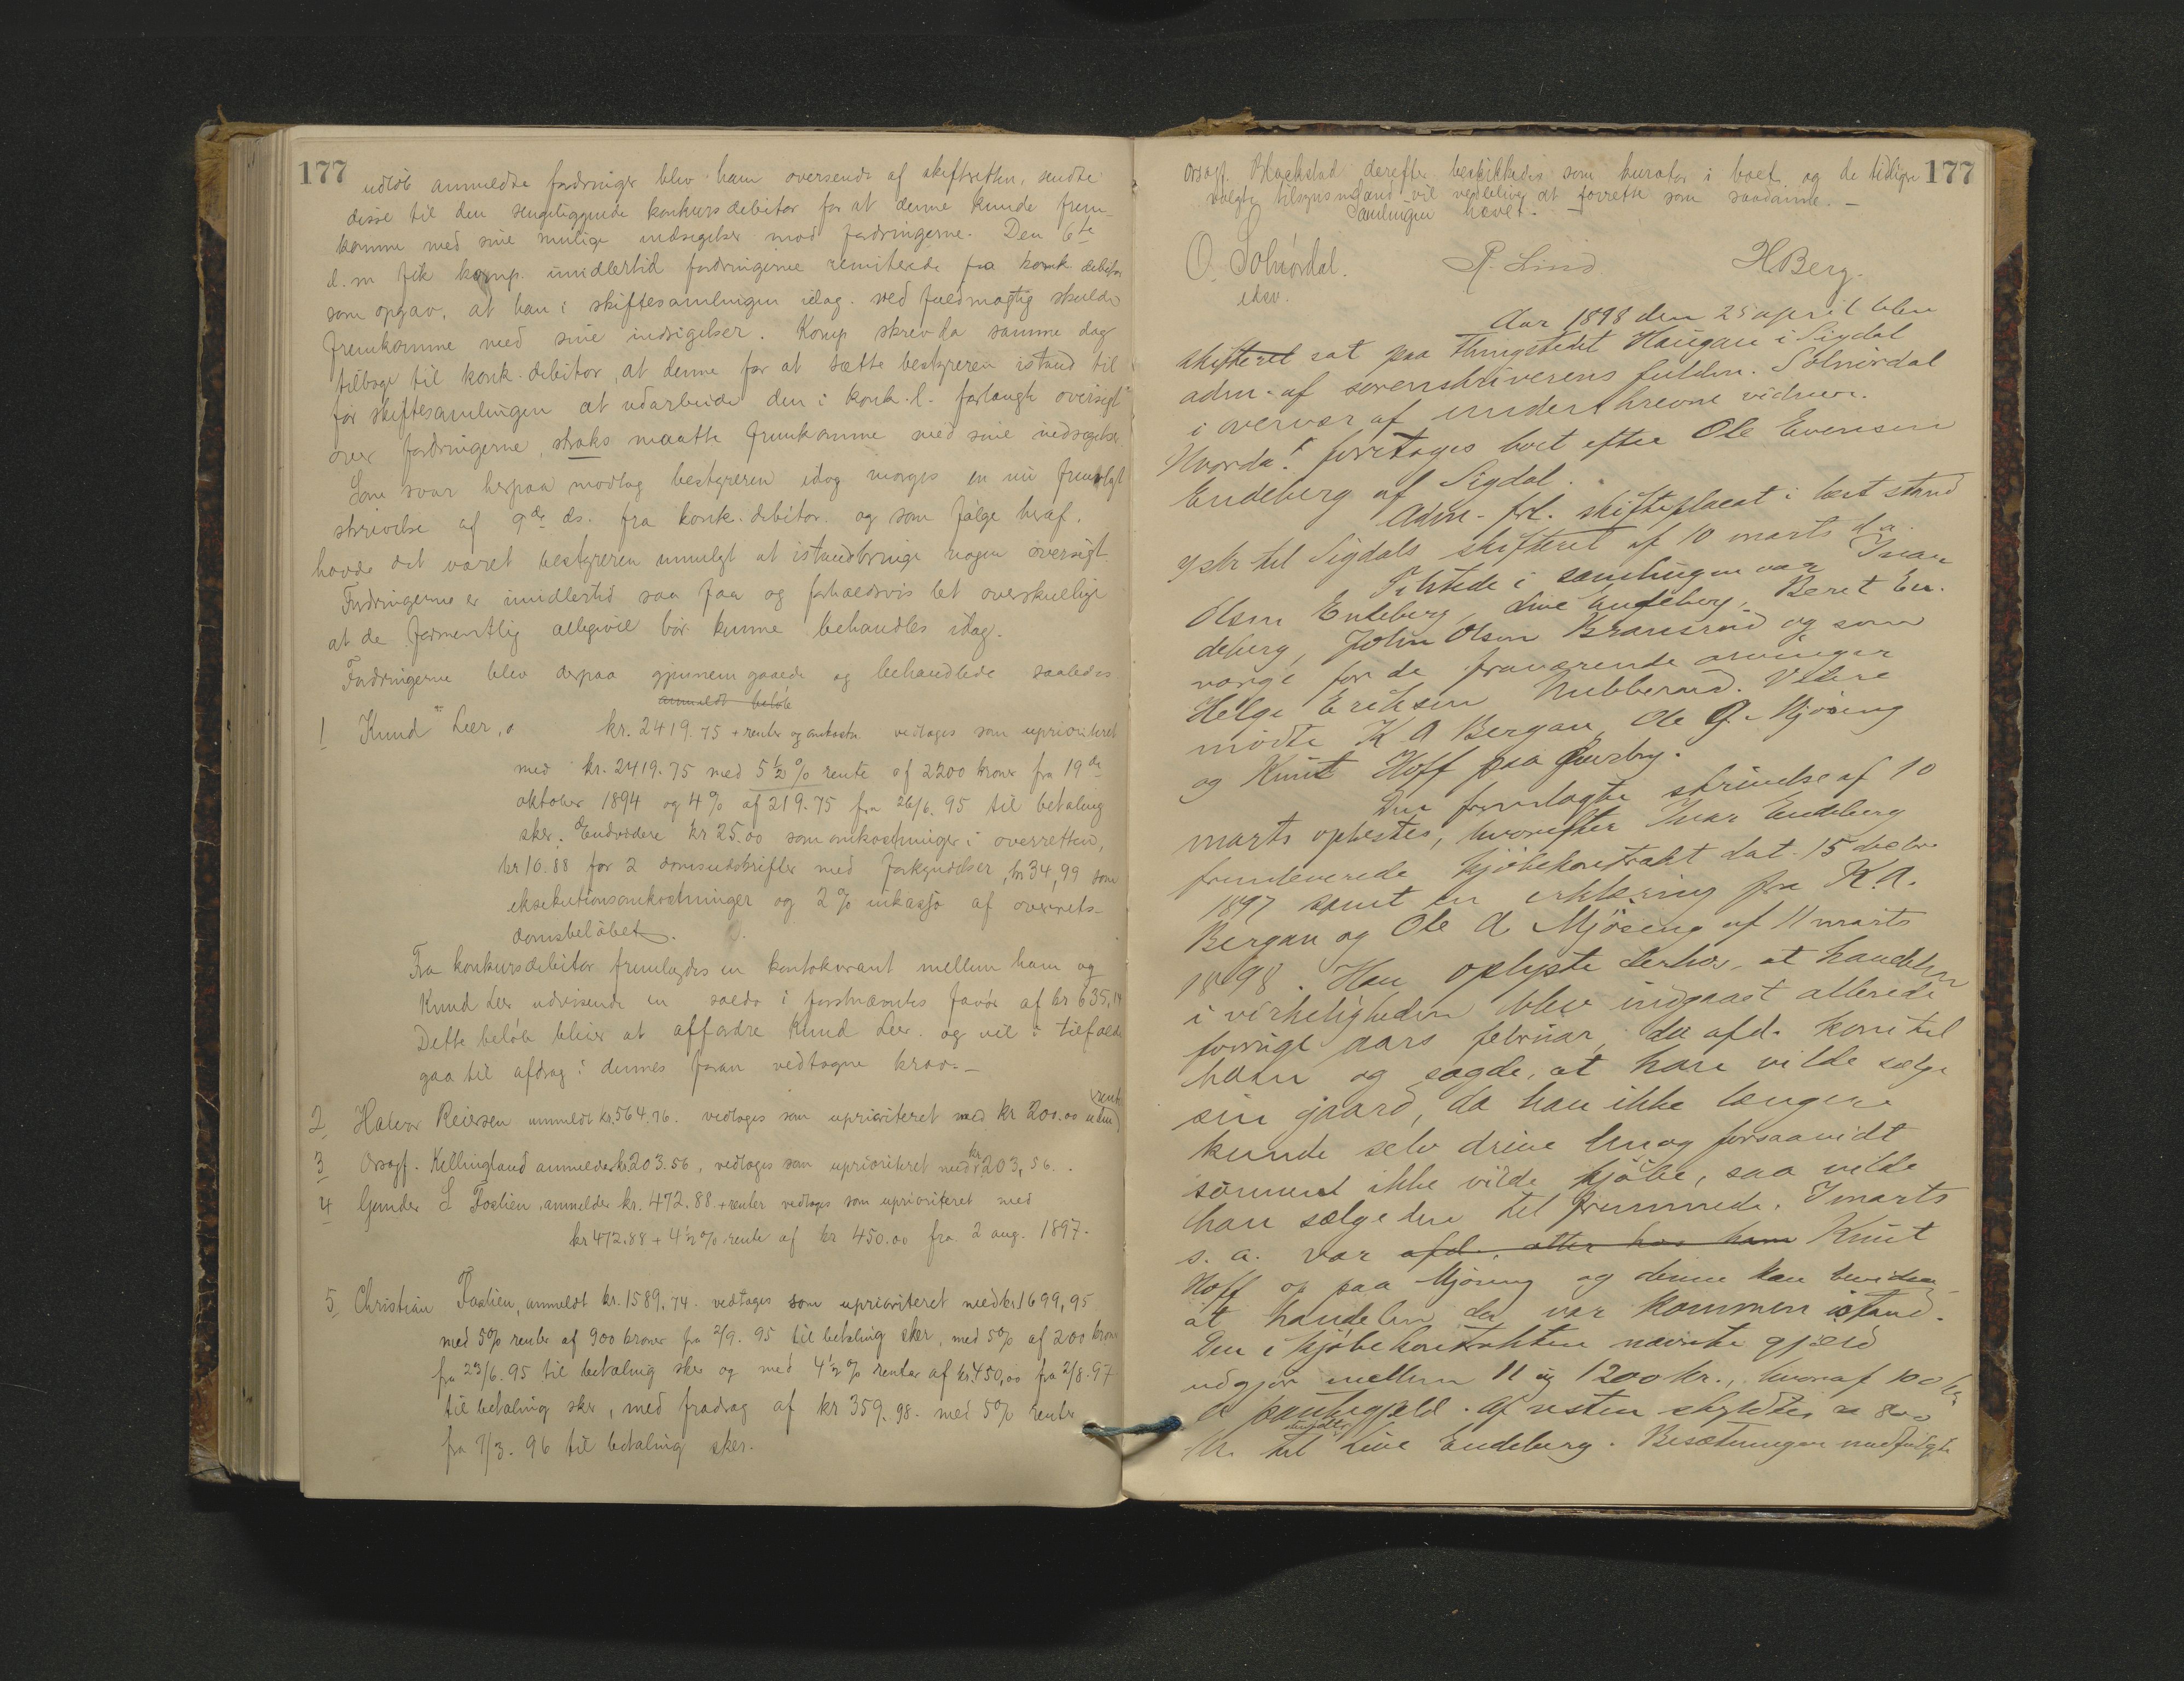 177
udløb anmeldte fordringer blev ham oversendt af skifteretten, sendte
disse til den sengeliggende konkursdebitor for at denne kunde frem-
komme med sine mulige indsigelser mod fordringerne. Den 6te
d. m fik komp. imidlertid fordringerne remitterede fra konk debitor
som opgav, at han i skiftesamlingen idag ved fuldmægtig skulde
fremkomme med sine indsigelser. Komp skrev da samme dag
tilbage til konk. debitor, at denne for at sætte bestyreren istand til
før skiftesamlingen at udarbeide den i konk. l. forlangte oversigt
over fordringerne, straks maatte fremkomme med sine indsigelser.
Som svar herpaa modtog bestyreren idag morges en nu fremlagt
skrivelse af 9de ds. fra konk. debitor og som følge heraf
havde det været bestyreren umuligt at istandbringe nogen oversigt.
Fordringerne er imidlertid saa faa og forholdsvis let overskuelige
at de formentlig alligevel bør kunne behandles idag.
Fordringerne blev derpaa gjennemgaaede og behandlede saaledes
anmeldt beløb
1 Knud Leer, kr. 2419.75 + renter og omkostn vedtages som uprioriteret
med kr. 2419.75 med 5 1/2 % rente af 2200 kroner fra 19de
oktober 1894 og 4% af 219.75 fra 26/6. 95 til betaling
sker. Endvidere kr 25.00 som omkostninger i overretten,
kr 10.88 for 2 domsudskrifter med forkyndelser, kr 34,99 som
eksekutionsomkostninger og 2 % inkasso af overrets-
domsbeløbet.
Fra konkursdebitor fremlagdes en kontokurant mellem ham og
Knud Leer udvisende en saldo i førstnævntes favør af kr 635,14
Dette beløb bliver at affordre Knud Leer og vil i tilfælde
gaa til afdrag i dennes foran vedtagne krav. —
2 Halvor Reiersen anmeldt kr. 564.76. vedtages som uprioriteret med kr 200.00 uden rente
3 Orsagf. Kellingland anmelder kr 203.56, vedtages som uprioriteret med kr 203,56.
4 Gunder L Foslien, anmelder kr. 472.88 + renter vedtages som uprioriteret med
kr 472.88 + 4 1/2 % rente af kr 450.00 fra 2 aug. 1897.
5 Christian Foslien, anmeldt kr. 1589,74. vedtages som uprioriteret med kr 1699,95
med 5% renter af 900 kroner fra 2/9. 95 til betaling sker, med 5% af 200 kroner
fra 23/6. 95 til betaling sker og med 4 1/2 % renter af kr. 450,00 fra 2/8. 97
til betaling sker, med fradrag af kr 359.98. med 5% renter
fra 7/3. 96 til betaling sker.
177
Orsagf. Blackstad derefter beskikkedes som kurator i boet og de tidligere
valgte tilsynsmænd vil vedblive at forrette som saadanne. —
Samlingen hævet.
O. Solnørdal. P. Lind H Berg.
edsv.
Aar 1898 den 25 april blev
skifteret sat paa thingstedet Haugan i Sigdal
adm. af sorenskriverens fuldm. Solnørdal
i overvær af underskrevne vidner.
Hvorda! foretages boet efter Ole Evensen
Endeberg af Sigdal.
Adm. frl. skifteplacat i læst stand
og skr til Sigdals skifteret af 10 marts d. a.
Tilstede i samlingen var Ivar
Olsen Endeberg, Live Endeberg, Beret En-
deberg, John Olsen Bransrud og som
værge for de fraværende arvinger
Helge Eriksen Nubberud. Videre
mødte K A Bergan, Ole G. Mjøseng
og Knut Hoff paa
Den fremlagte skrivelse af 10
marts oplæstes, hvorefter Ivar Endeberg
fremleverede kjøbekontrakt dat. 15 decbr
1897 samt en erklæring fra K. A.
Bergan og Ole A Mjøseng af 11 marts
1898. Han oplyste derhos, at handelen
i virkeligheden blev indgaaet allerede
forrige aars februar, da afd. kom til
ham og sagde, at han vilde sælge
sin gaard, da han ikke længere
kunde selv drive den og forsaavidt
sønnen ikke vilde kjøbe, saa vilde
han sælge den til fremmede. I marts
s. a. var afd. atter hos ham Knut
Hoff op paa Mjøseng og denne kan bevidne
at handelen da var kommen istand.
Den i kjøbekontrakten nævnte gjæld
udgjør mellem 11 og 1200 kr., hvoraf 100 kr
er pantegjæld. Af resten skyldtes ca 800
kr. til Live Endeberg. Besætningen medfulgte